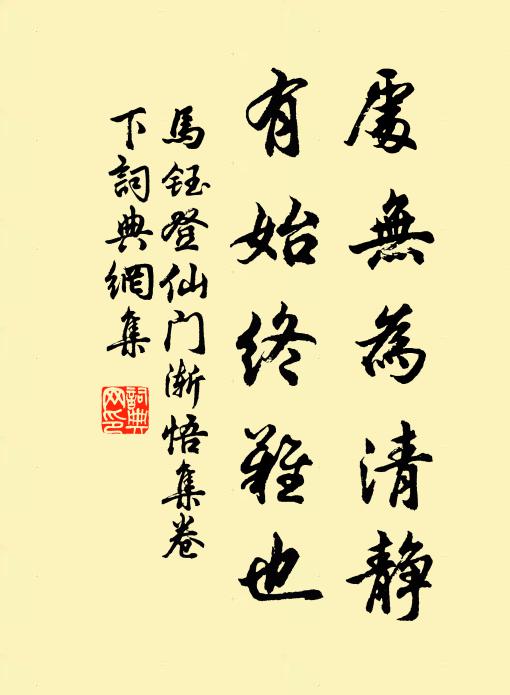 處無為清靜
有始終難也
馬鈺登仙门漸悟集卷
下詞典網集
詞典
网印